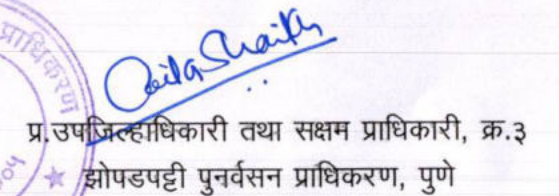 प्राधिकरण
प्र.उपजिल्हाधिकारी तथा सक्षम प्राधिकारी, क्र.३
झोपडपट्टी पुनर्वसन प्राधिकरण, पुणे